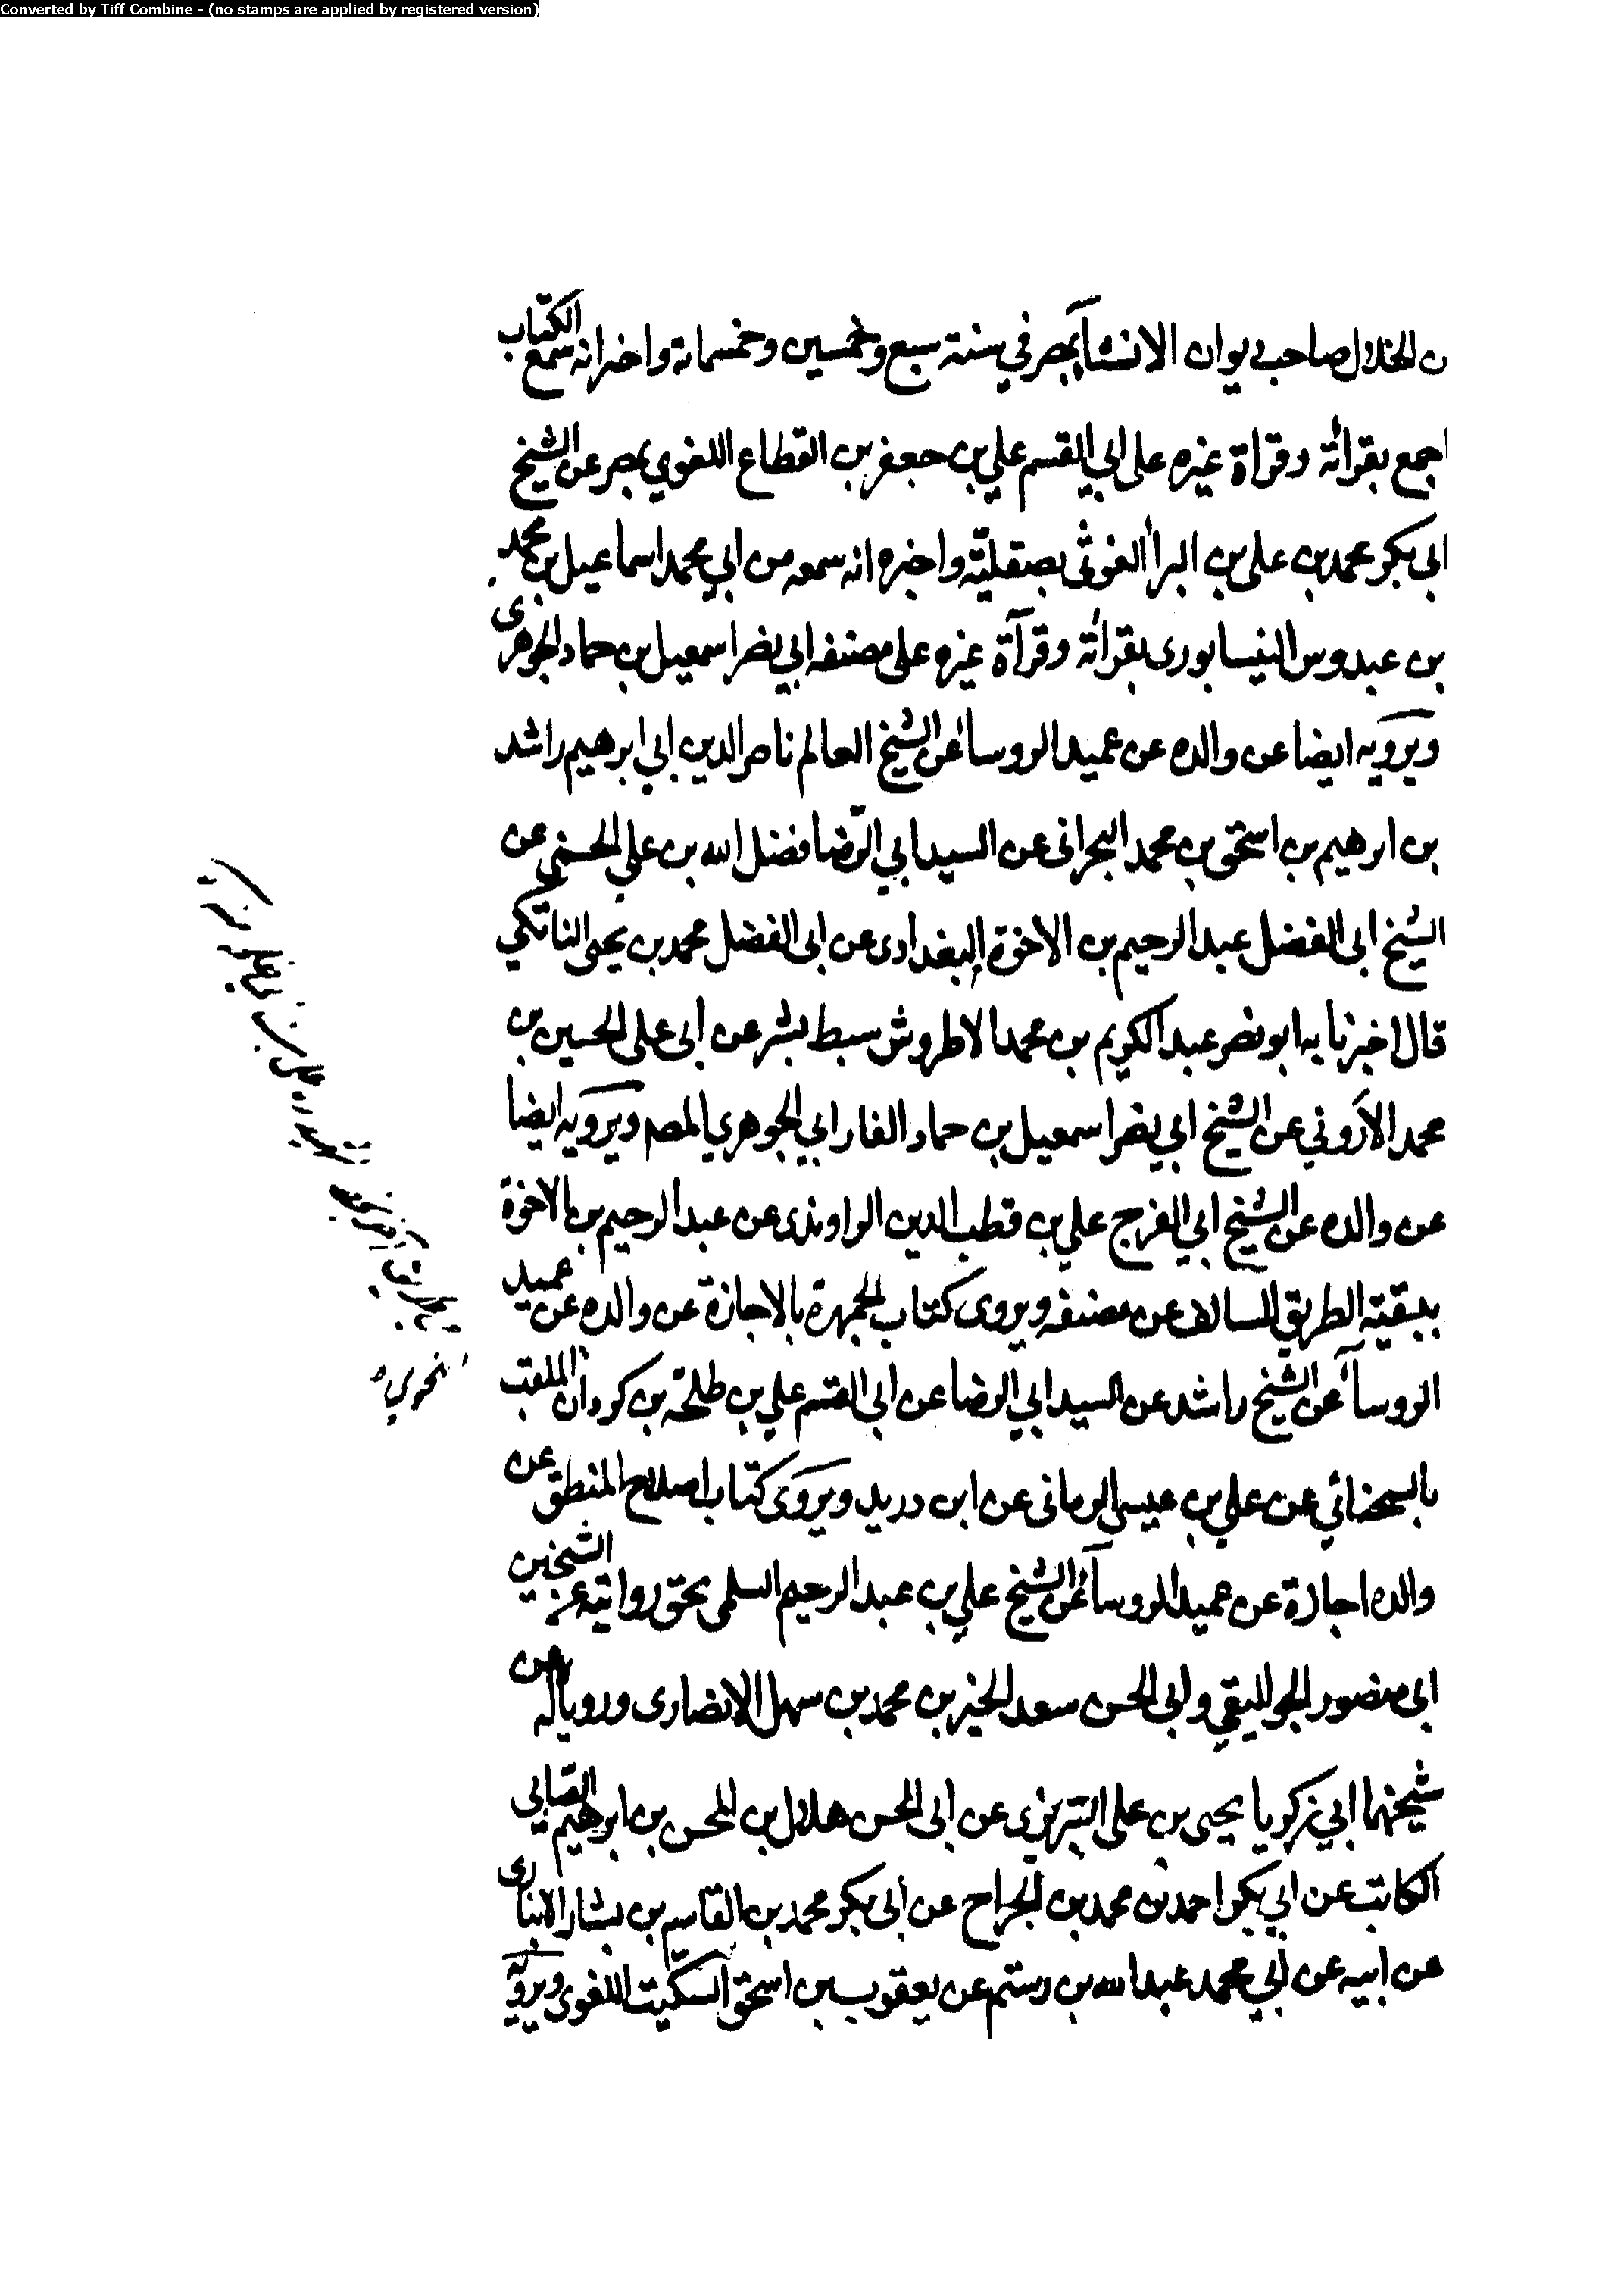 Converted by Tiff Combine - (no stamps are applied by registered version)
ن الخلال صاحب ديوان الانشآ بمصر في سنة سبع وخمسين وخمسمائة واخبر انه سمع الكتاب
اجمع بقرائة وقراة غيره على ابي القسم علي بن جعفر بن القطاع اللغوي بمصر عن الشيخ
ابى بكر محمد بن على بن البرا الغوثى بصقلية واخبره انه سمعه من ابي محمد اسماعيل بن محمد
بن عبدوس النيسابورى بقرائة وقرآة غيره على مصنفه ابي نصر اسمعيل بن حماد الجوهرى
ويرويه ايضا عن والده عن عميد الروسا عن الشيخ العالم ناصر الدين ابي ابرهيم راشد
بن ابرهيم بن اسحق بن محمد البحرانى عن السيد ابي الرضا فضل الله بن علي الحسني عن
الشيخ ابى الفضل عبد الرحيم بن الاخوة البغدادى عن ابى الفضل محمد بن يحيى الناتكي
قال اخبرنا به ابو نصر عبد الكريم بن محمد الاطروش سبط بشر عن ابى على الحسين بن
محمد الاروني عن الشيخ ابي نصر اسمعيل بن حماد الفارابي الجوهري المصم ويرويه ايضا
عن والده عن الشيخ ابي الفرج علي بن قطب الدين الراوندى عن عبد الرحيم بن الاخوة
ببقية الطريق السالف عن مصنفه ويروى كتاب الجمهرة بالاجازة عن والده عن عميد
الروسآ عن الشيخ راشد عن السيد ابي الرضا عن ابى القسم علي بن طلحة بن كردان الملقب
بالسحنائي عن علي بن عيسى الرمانى عن ابن دريد ويروى كتاب اصلاح المنطق عن
والده اجازة عن عميد الروسآ عن الشيخ علي بن عبد الرحيم السلمى بحق روايته عن الشيخين
ابى منصور الجواليقي وابى الحسن سعد الخير بن محمد بن سهل الانصارى وروياله عن
شيخهما ابي زكريا يحيى بن على التبريزى عن ابى الحسن هلال بن المحسن بن ابرهيم الصابى
الكاتب عن ابي بكر احمد بن محمد بن الجراح عن ابى بكر محمد بن القاسم بن بشار الانبارى
عن ابيه عن ابي محمد عبد الله بن رستم عن يعقوب بن اسحق السكيت اللغوى ويرويه
النحوي